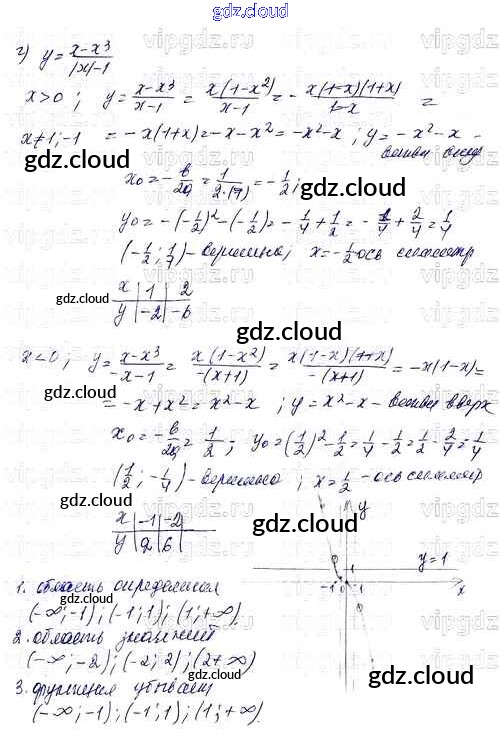 gdz.cloud
г) y = (x-x³)/(|x|-1)
x>0; y = (x-x³)/(x-1) = x(1-x²)/(x-1) = - x(1-x)(1+x)/(1-x) =
x≠1;-1 = -x(1+x) = -x-x² = -x²-x; y = -x²-x -
ветви вниз
gdz.cloud gdz.cloud
x₀ = -b/2a = 1/(2·(-1)) = -1/2;
y₀ = -(-1/2)² - (-1/2) = -1/4 + 1/2 = -1/4 + 2/4 = 1/4
(-1/2; 1/4) - вершина; x = -1/2 ось симметр
x | 1 | 2
y | -2 | -6
gdz.cloud
gdz.cloud
x<0; y = (x-x³)/(-x-1) = x(1-x²)/(-(x+1)) = x(1-x)(1+x)/(-(x+1)) = -x(1-x) =
= -x+x² = x²-x; y = x²-x - ветви вверх
x₀ = -b/2a = 1/2; y₀ = (1/2)² - 1/2 = 1/4 - 1/2 = 1/2 - 2/4 = 1/4
(1/2; -1/4) - вершина; x = 1/2 - ось симметр
gdz.cloud gdz.cloud
x | -1 | -2
y | 2 | 6
gdz.cloud
y
y=1
1
-1 0 1 x
1. область определения
(-∞;-1); (-1;1); (1;+∞).
2. область значений
(-∞;-2); (-2;2); (2+∞)
3. функция убывает
(-∞;-1); (-1;1); (1;+∞).
gdz.cloud gdz.cloud